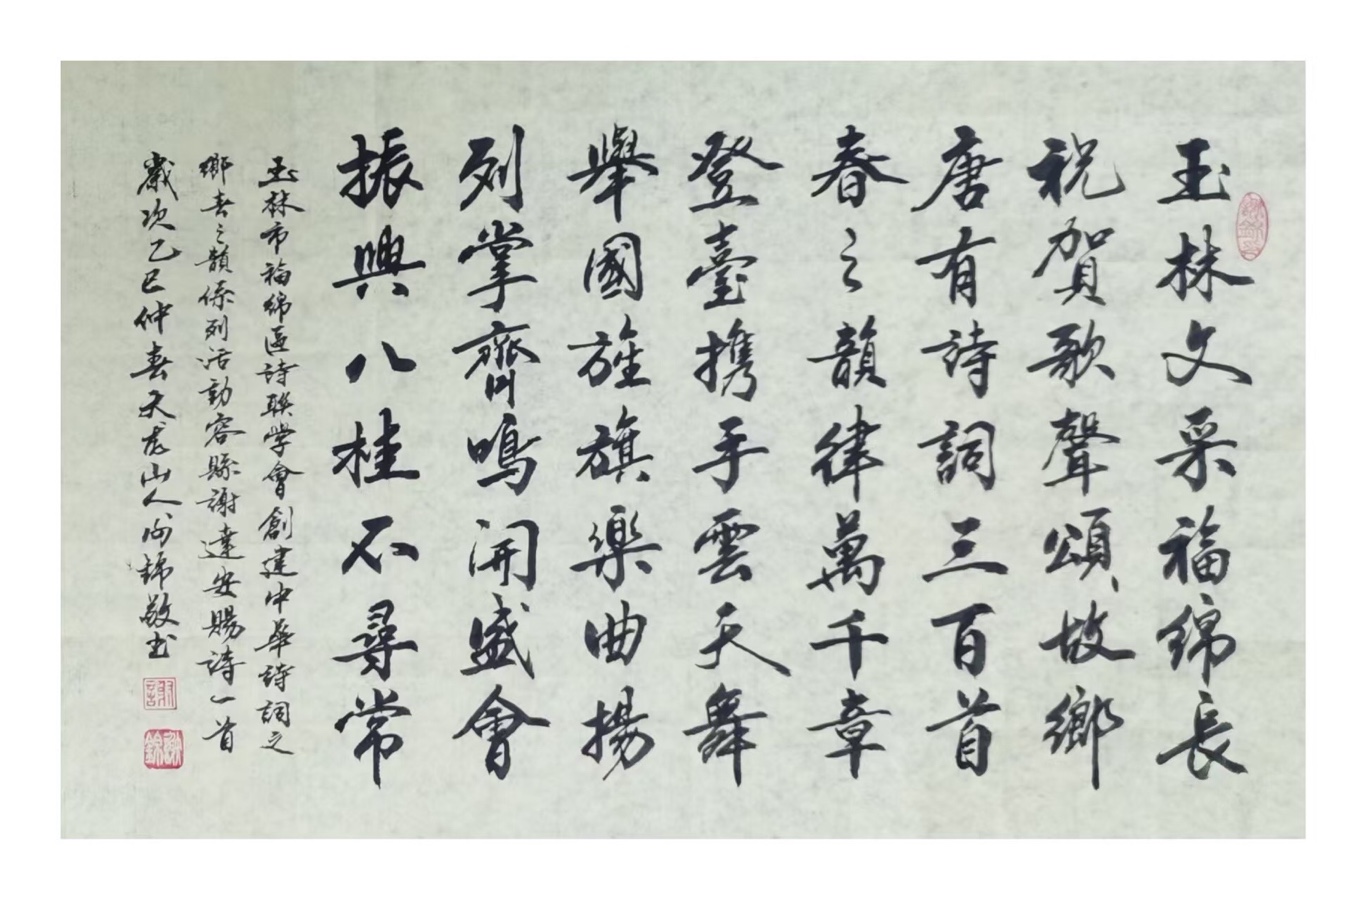 玉林文采福綿長
祝賀歌聲頌故鄉
唐有詩詞三百首
春之韻律萬千章
登臺攜手雲天舞
舉國旌旗樂曲揚
列掌齊鳴開盛會
振興八桂不尋常
玉林市福綿區詩聯学會創建中華詩詞之
鄉春之韻係列活動容縣謝達安賜詩一首
歲次乙巳仲春天龙山人謝錦敬书